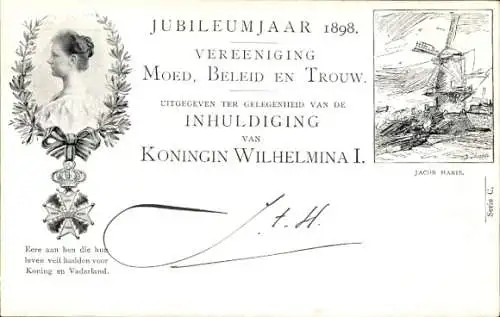 JUBILEUMJAAR 1898.
VEREENIGING
MOED, BELEID EN TROUW.
UITGEGEVEN TER GELEGENHEID VAN DE
INHULDIGING
VAN
KONINGIN WILHELMINA I.
JACOB MARIS.
Serie C.
Eere aan hen die hun
leven veil hadden voor
Koning en Vaderland.